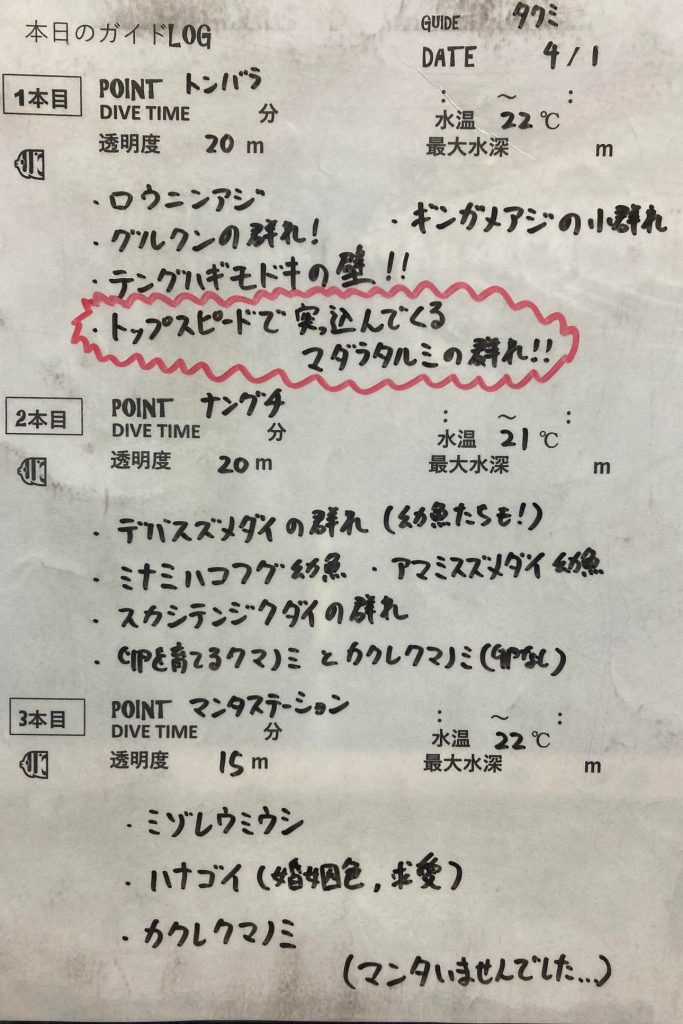 本日のガイドLOG
GUIDE タクミ
DATE 4/1
1本目 POINT トンバラ : ～ :
DIVE TIME 分 水温 22℃
透明度 20m 最大水深 m
・ロウニンアジ
・ギンガメアジの小群れ
・グルクンの群れ!
・テングハギモドキの壁!!
・トップスピードで突っ込んでくる
マダラタルミの群れ!!
2本目 POINT ナングチ : ～ :
DIVE TIME 分 水温 21℃
透明度 20m 最大水深 m
・デバスズメダイの群れ(幼魚たちも!)
・ミナミハコフグ幼魚 ・アマミスズメダイ幼魚
・スカシテンジクダイの群れ
・を育てるクマノミとカクレクマノミ(なし)
3本目 POINT マンタステーション : ～ :
DIVE TIME 分 水温 22℃
透明度 15m 最大水深 m
・ミゾレウミウシ
・ハナゴイ(婚姻色,求愛)
・カクレクマノミ
(マンタいませんでした...)